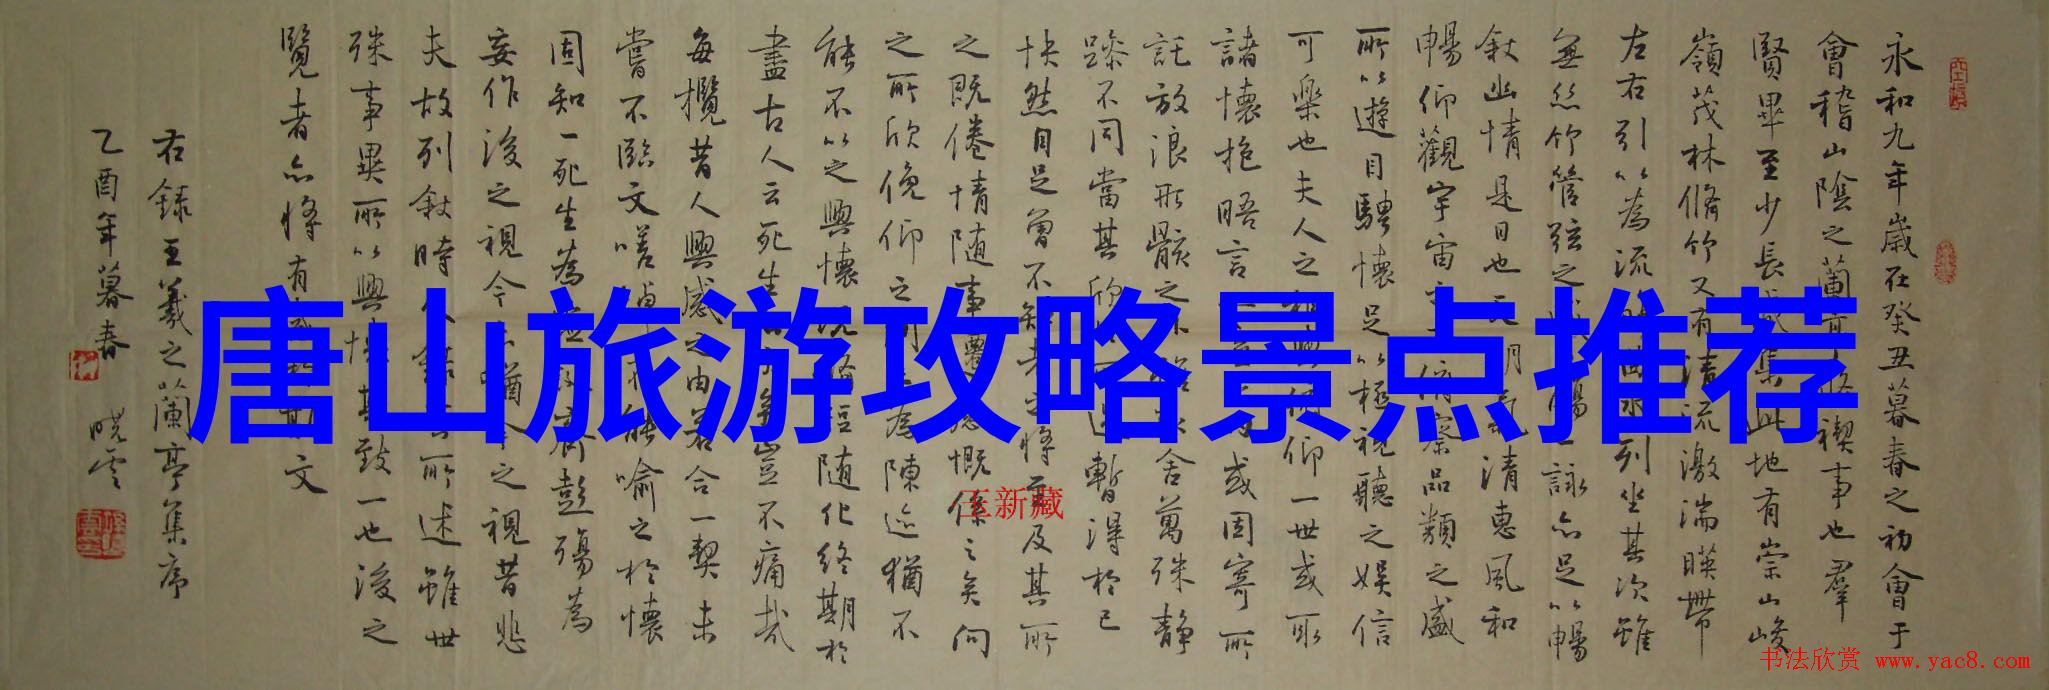 永和九年歲在癸丑暮春之初會于
會稽山陰之蘭亭脩禊事也羣
賢畢至少長咸集此地有崇山峻
嶺茂林脩竹又有清流激湍暎帶
左右引以為流觴曲水列坐其次雖
無絲竹管弦之盛一觴一詠亦足以暢
敘幽情是日也天朗氣清惠風和
暢仰觀宇宙之大俯察品類之盛
所以遊目騁懷足以極視聽之娛信
可樂也夫人之相與俯仰一世或取
諸懷抱晤言一室之內或因寄所
託放浪形骸之外雖取舍萬殊靜
躁不同當其欣於所遇暫得於己
快然自足曾不知老之將至及其所
之既倦情随事遷感慨係之矣向
之所欣俛仰之間已為陳迹猶不
能不以之興懷況脩短随化終期於
盡古人云死生亦大矣豈不痛哉
每攬昔人興感之由若合一契未
嘗不臨文嗟悼不能喻之於懷
固知一死生為虛誕齊彭殤為
妄作後之視今亦猶今之視昔悲
夫故列敘時人錄其所述雖世
殊事異所以興懷其致一也後之
覽者亦將有感於斯文
右録王羲之蘭亭集序
乙酉年暮春 曉雲
唐山旅游攻略景点推荐
王新藏
书法欣赏 www.yac8.com